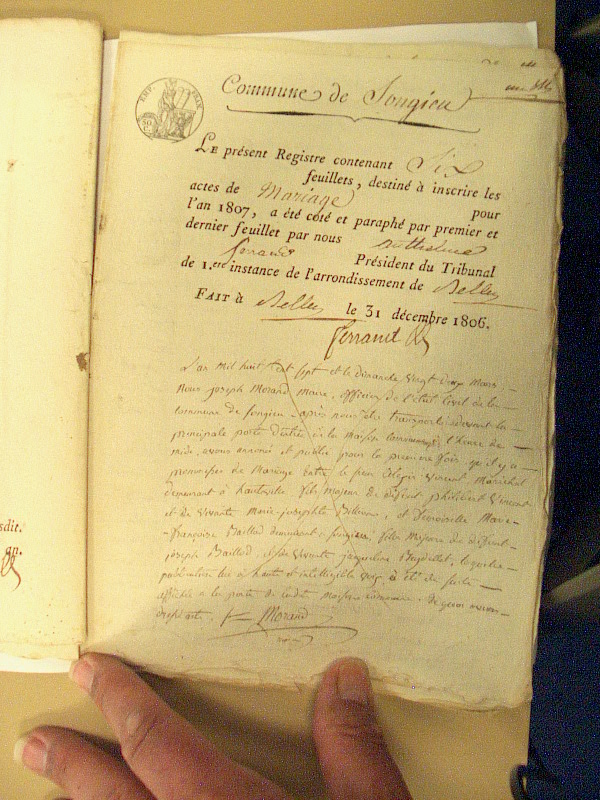 Commune de Songieu
LE présent Registre contenant Six
feuillets, destiné à inscrire les
actes de Mariage pour
l'an 1807, a été coté et paraphé par premier et
dernier feuillet par nous
ferrand Président du Tribunal
de 1.ere instance de l'arrondissement de Belley
FAIT à Belley le 31 décembre 1806.
ferrand
L'an mil huit cent sept et le dimanche vingt deux Mars
Nous joseph Morand Maire, officier de l'état Civil de la
Commune de Songieu après nous être transporté devant la
principale porte d'entrée de la Maison Commune à l'heure de
midi, avons annoncé et publié pour la première fois qu'il y a
promesse de Mariage Entre le sieur Vincent Maréchal
demeurant à hauteville fils majeur de défunt philibert Vincent
et de Vivante Marie-josephte et Demoiselle Marie-
françoise Baillod demeurant à Songieu, fille Mineure de défunt
joseph Baillod, et de Vivante jacqueline laquelle
publication lue à haute et intelligible voix, à été de suite
affichée à la porte de la dite Maison Commune. De quoi avons
dressé acte. Morand
sdit.